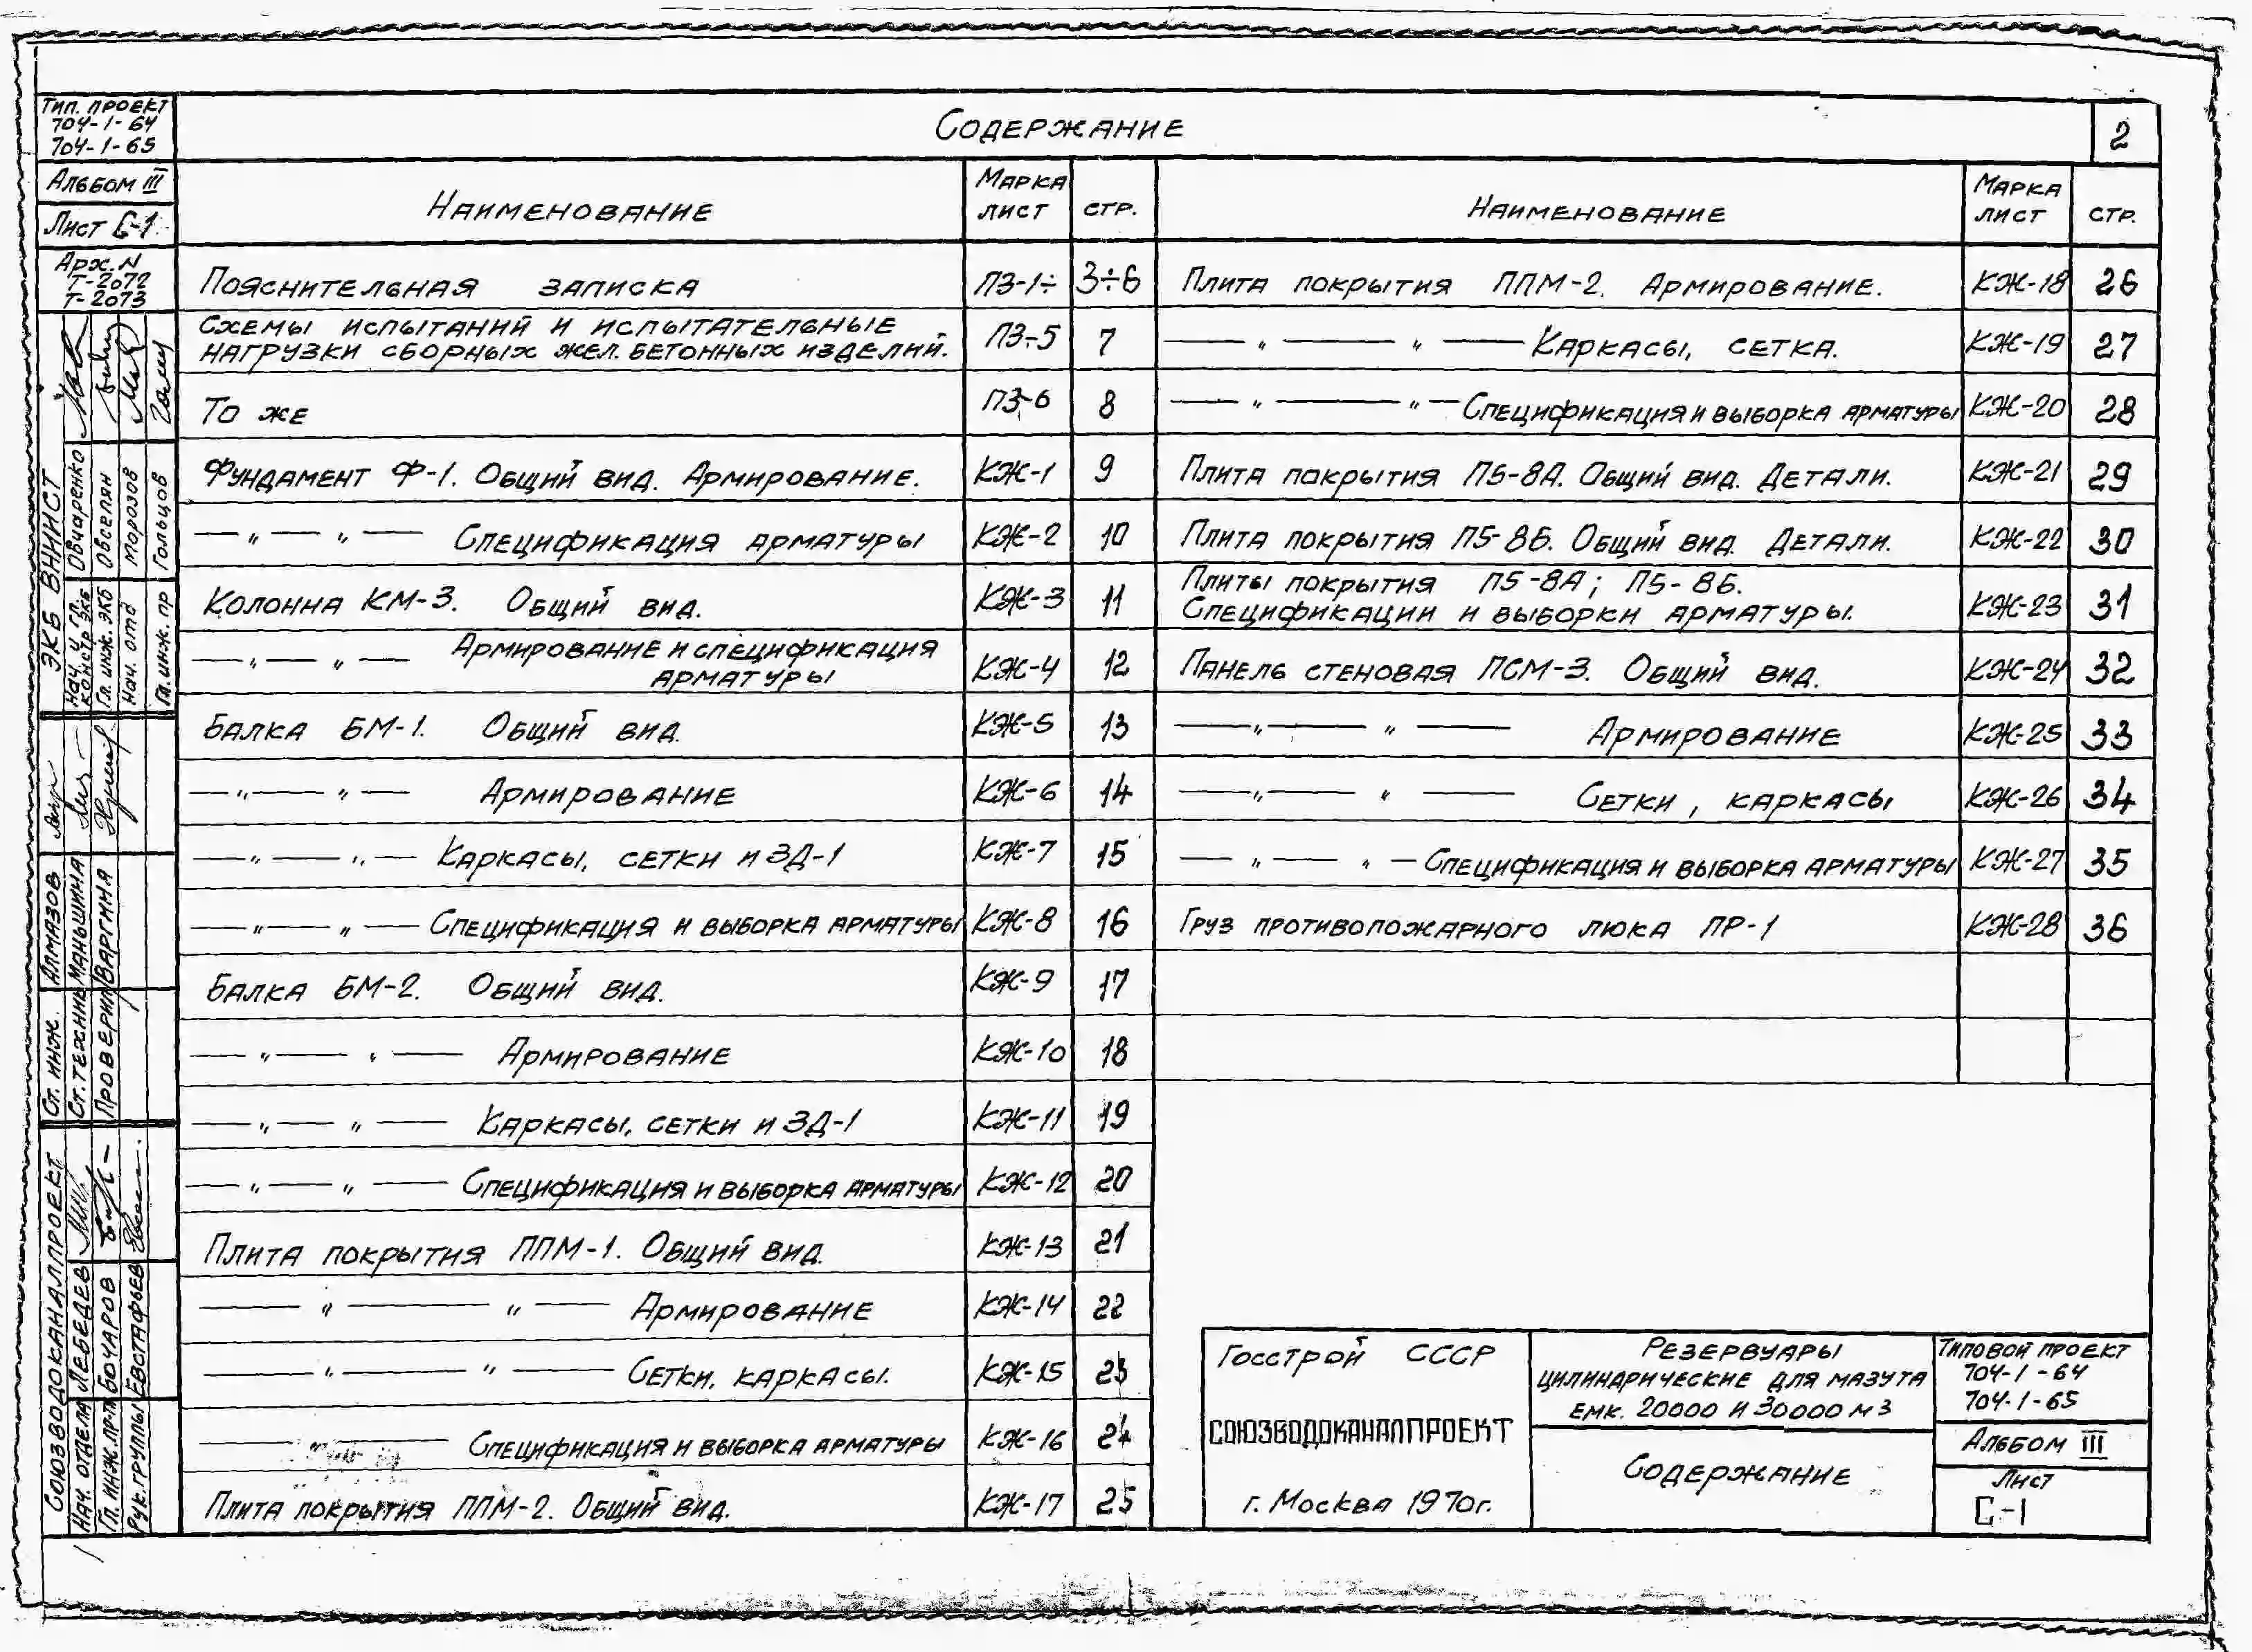 Тип. проект
704-1-64
704-1-65
Альбом III
Лист С-1
Арх. N
Т-2072
Т-2073
Содержание
2
Наименование Марка лист стр.
Пояснительная записка ПЗ-1÷ 3÷6
Схемы испытаний и испытательные
нагрузки сборных жел. бетонных изделий. ПЗ-5 7
То же ПЗ-6 8
Фундамент Ф-1. Общий вид. Армирование. КЖ-1 9
— " — " — Спецификация арматуры КЖ-2 10
Колонна КМ-3. Общий вид. КЖ-3 11
— " — " — Армирование и спецификация
арматуры КЖ-4 12
Балка БМ-1. Общий вид. КЖ-5 13
— " — " — Армирование КЖ-6 14
— " — " — Каркасы, сетки и ЗД-1 КЖ-7 15
— " — " — Спецификация и выборка арматуры КЖ-8 16
Балка БМ-2. Общий вид. КЖ-9 17
— " — " — Армирование КЖ-10 18
— " — " — Каркасы, сетки и ЗД-1 КЖ-11 19
— " — " — Спецификация и выборка арматуры КЖ-12 20
Плита покрытия ППМ-1. Общий вид. КЖ-13 21
— " — " — Армирование КЖ-14 22
— " — " — Сетки, каркасы. КЖ-15 23
— " — Спецификация и выборка арматуры КЖ-16 24
Плита покрытия ППМ-2. Общий вид. КЖ-17 25
Наименование Марка лист стр.
Плита покрытия ППМ-2. Армирование. КЖ-18 26
— " — " — Каркасы, сетка. КЖ-19 27
— " — " — Спецификация и выборка арматуры КЖ-20 28
Плита покрытия П5-8А. Общий вид. Детали. КЖ-21 29
Плита покрытия П5-8Б. Общий вид. Детали. КЖ-22 30
Плиты покрытия П5-8А; П5-8Б.
Спецификации и выборки арматуры. КЖ-23 31
Панель стеновая ПСМ-3. Общий вид. КЖ-24 32
— " — " — Армирование КЖ-25 33
— " — " — Сетки, каркасы КЖ-26 34
— " — " — Спецификация и выборка арматуры КЖ-27 35
Груз противопожарного люка ПР-1 КЖ-28 36
Госстрой СССР
СОЮЗВОДОКАНАЛПРОЕКТ
г. Москва 1970г.
Резервуары
цилиндрические для мазута
емк. 20000 и 30000 м3
Содержание
Типовой проект
704-1-64
704-1-65
Альбом III
Лист
С-1
ЭКБ ВНИИСТ
Нач. и гл. констр ЭКБ Овчаренко
Гл. инж. ЭКБ Овселян
Нач. отд Морозов
Гл. инж. пр Гольцов
Ст. инж. Алмазов
Ст. техник Маньшина
Проверил Варгина
СОЮЗВОДОКАНАЛПРОЕКТ
Нач. отдела Лебедев
Гл. инж. пр-та Бочаров
Рук. группы Евстафьев